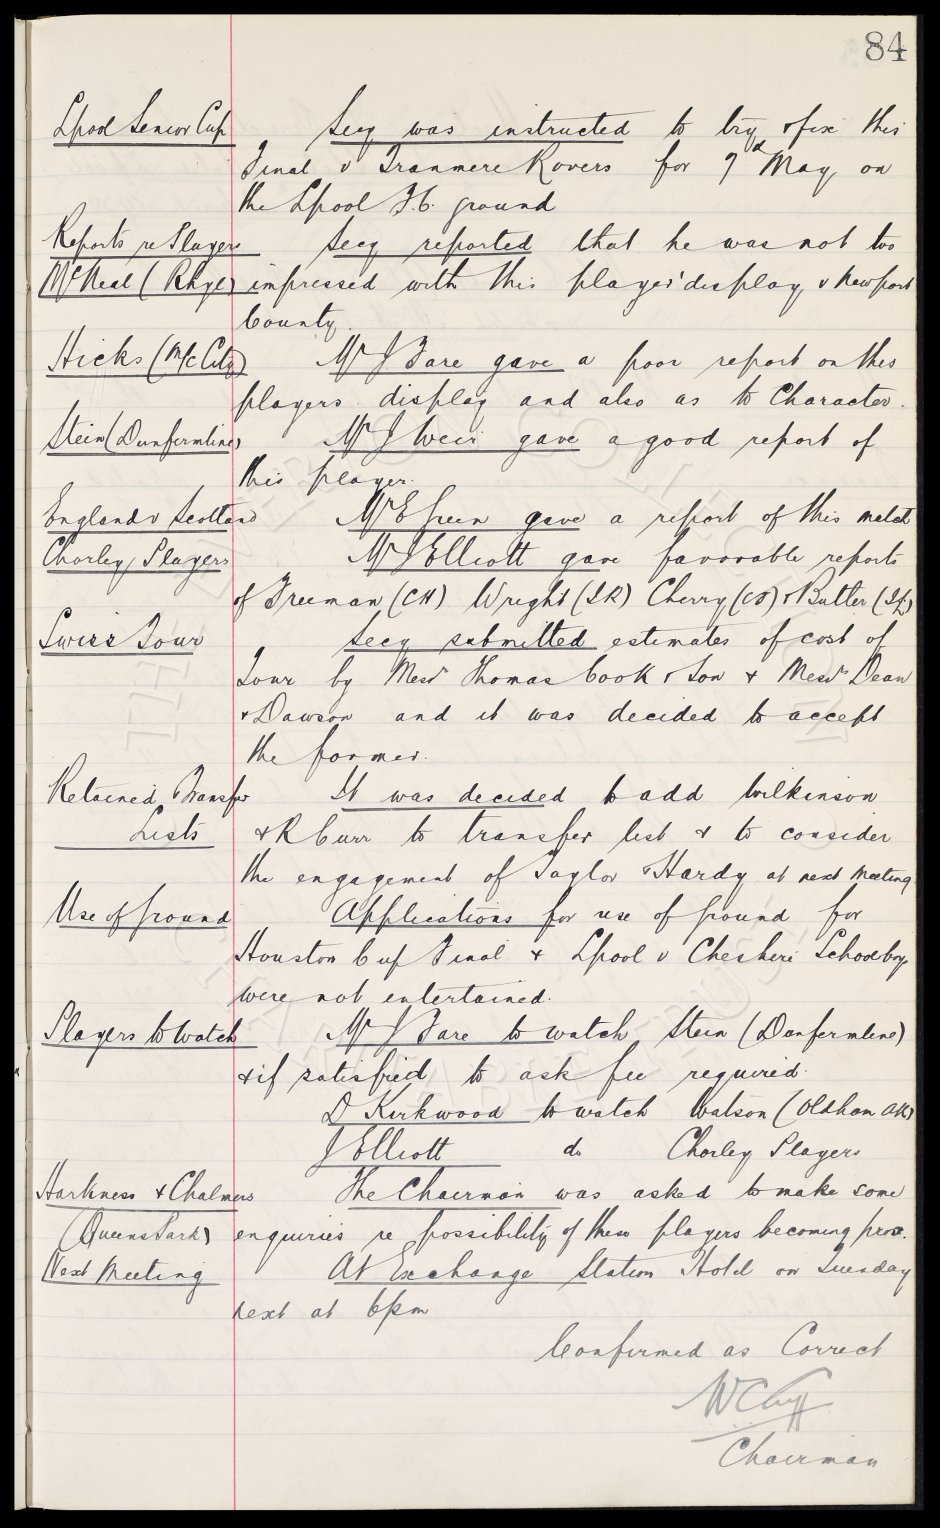 84
Lpool Senior Cup Secy was instructed to try & fix this
Final v Tranmere Rovers for 7th May on
the Lpool F.C. ground
Reports re Players Secy reported that he was not too
McNeal (Rhyl) impressed with this player' display v Newport
County.
Hicks (M/c City) Mr J Fare gave a poor report on this
players display and also as to Character.
Stein (Dunfermline) Mr J Weir gave a good report of
this player.
England v Scotland Mr E Green gave a report of this match
Chorley Players Mr J Elliott gave favorable reports
of Freeman (CH) Wright (IR) Cherry (CF) & Butler (IL)
Swiss Tour Secy submitted estimates of cost of
Tour by Messrs Thomas Cook & Son & Messrs Dean
& Dawson and it was decided to accept
the former.
Retained, Transfer It was decided to add Wilkinson
Lists & R Curr to transfer list & to consider
the engagement of Taylor & Hardy at next meeting.
Use of Ground Applications for use of ground for
Houston Cup Final & Lpool v Cheshire Schoolboys
were not entertained.
Players to Watch Mr J Fare to watch Stein (Dunfermline)
& if satisfied to ask fee required.
D Kirkwood to watch Watson (Oldham Ath)
J Elliott do Chorley Players
Harkness & Chalmers The Chairman was asked to make some
(Queens Park) enquiries re possibility of these players becoming pros.
Next Meeting At Exchange Station Hotel on Tuesday
next at 6pm
Confirmed as Correct
W C Cuff
Chairman